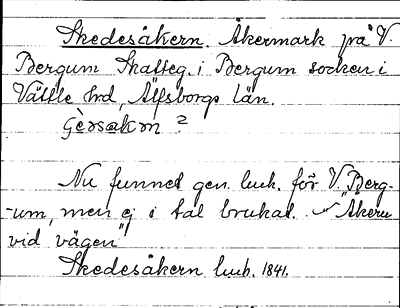 Skedesåkern. Åkermark på V.
Bergum Skatteg. i Bergum socken i
Vättle hrd, Älfsborgs län.
?
Nu funnet gen. luh. för V. Berg-
-um, men ej i tal brukat. "Åkern
vid vägen"
Skedesåkern luh. 1841.